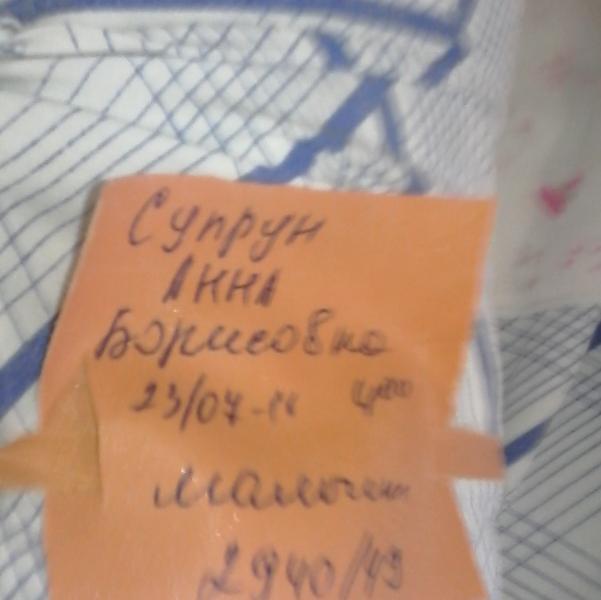 Супрун
Анна
Борисовна
23/07-14 4⁰⁰
мальчик
2940/49